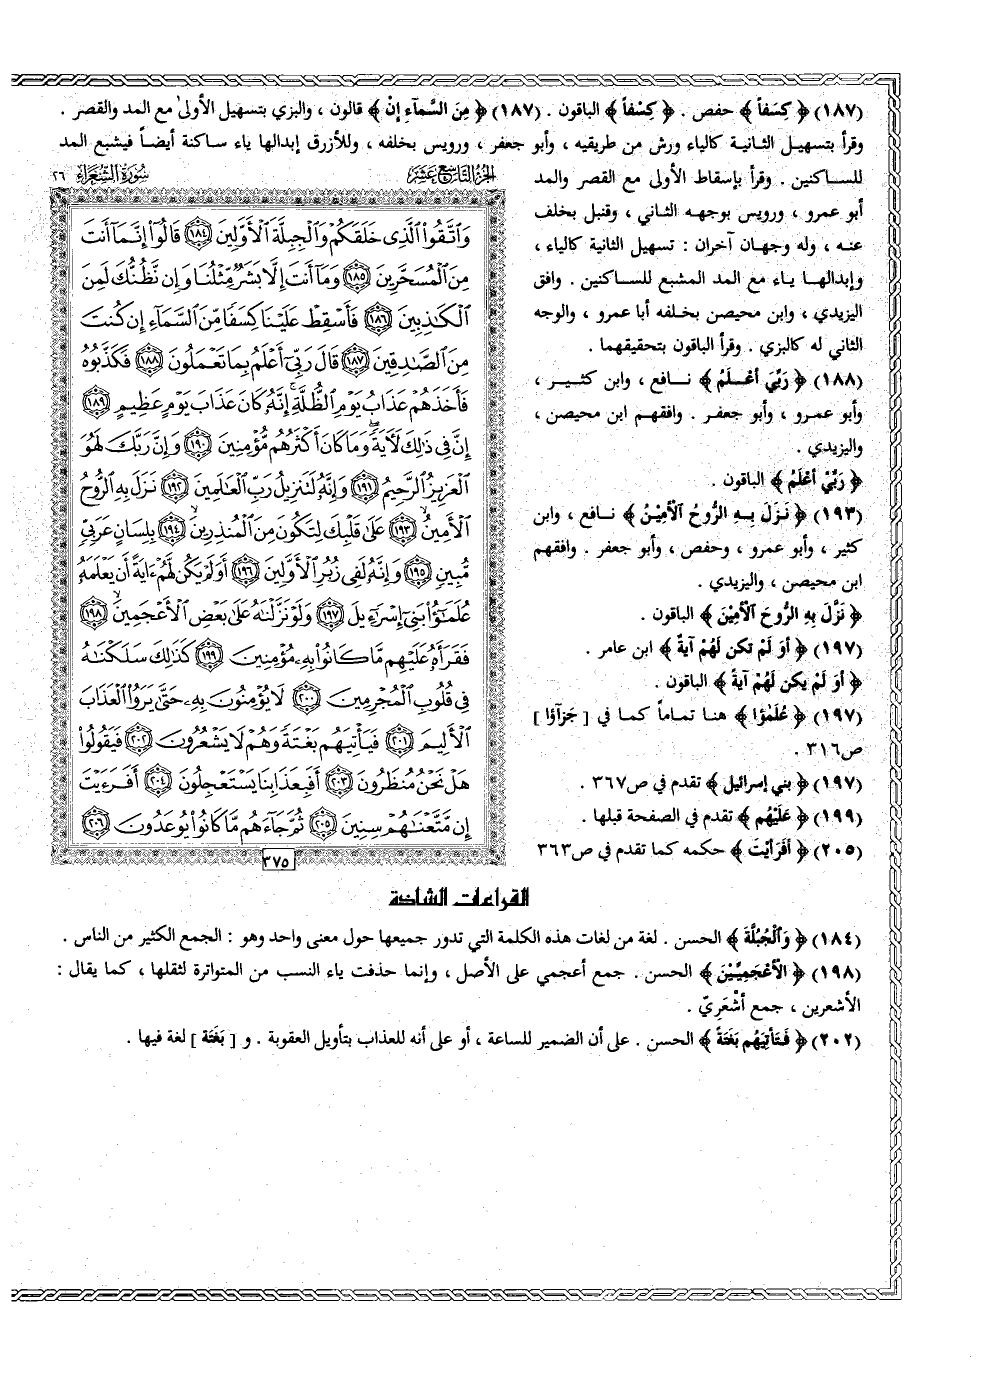 (١٨٧) ﴿ كِسَفاً ﴾ حفص . ﴿ كِسْفاً ﴾ الباقون . (١٨٧) ﴿ مِنَ السَّمآءِ إنْ ﴾ قالون ، والبزي بتسهيل الأولى مع المد والقصر .
وقرأ بتسهيل الثانية كالياء ورش من طريقيه ، وأبو جعفر ، ورويس بخلفه ، وللأزرق إبدالها ياء ساكنة أيضاً فيشبع المد
للساكنين . وقرأ بإسقاط الأولى مع القصر والمد
أبو عمرو ، ورويس بوجهه الثاني ، وقنبل بخلف
عنه ، وله وجهان آخران : تسهيل الثانية كالياء ،
وإبدالها ياء مع المد المشبع للساكنين . وافق
اليزيدي ، وابن محيصن بخلفه أبا عمرو ، والوجه
الثاني له كالبزي . وقرأ الباقون بتحقيقهما .
(١٨٨) ﴿ رَبِّيَ أعْلَمُ ﴾ نافع ، وابن كثير ،
وأبو عمرو ، وأبو جعفر . وافقهم ابن محيصن ،
واليزيدي .
﴿ رَبِّيْ أعْلَمُ ﴾ الباقون .
(١٩٣) ﴿ نَزَلَ بِهِ الرُّوحُ الْأمِيْنُ ﴾ نافع ، وابن
كثير ، وأبو عمرو ، وحفص ، وأبو جعفر . وافقهم
ابن محيصن ، واليزيدي .
﴿ نَزَّلَ بِهِ الرُّوحَ الْأمِيْنَ ﴾ الباقون .
(١٩٧) ﴿ أوَ لَمْ تَكن لَهُمْ آيةٌ ﴾ ابن عامر .
﴿ أوَ لَمْ يكن لَهُمْ آيةً ﴾ الباقون .
(١٩٧) ﴿ عُلَمٰؤا ﴾ هنا تماماً كما في [ جَزآؤا ]
ص٣١٦ .
(١٩٧) ﴿ بني إسرائيل ﴾ تقدم في ص٣٦٧ .
(١٩٩) ﴿ عَلَيْهُم ﴾ تقدم في الصفحة قبلها .
(٢٠٥) ﴿ أفَرَأيْتَ ﴾ حكمه كما تقدم في ص٣٦٣
الجزء التاسع عشر سورة الشعراء ٢٦
وَاتَّقُوا الَّذِي خَلَقَكُمْ وَالْجِبِلَّةَ الْأَوَّلِينَ ١٨٤ قَالُوا إِنَّمَا أَنتَ
مِنَ الْمُسَحَّرِينَ ١٨٥ وَمَا أَنتَ إِلَّا بَشَرٌ مِّثْلُنَا وَإِن نَّظُنُّكَ لَمِنَ
الْكَاذِبِينَ ١٨٦ فَأَسْقِطْ عَلَيْنَا كِسَفًا مِّنَ السَّمَاءِ إِن كُنتَ
مِنَ الصَّادِقِينَ ١٨٧ قَالَ رَبِّي أَعْلَمُ بِمَا تَعْمَلُونَ ١٨٨ فَكَذَّبُوهُ
فَأَخَذَهُمْ عَذَابُ يَوْمِ الظُّلَّةِ إِنَّهُ كَانَ عَذَابَ يَوْمٍ عَظِيمٍ ١٨٩
إِنَّ فِي ذَٰلِكَ لَآيَةً وَمَا كَانَ أَكْثَرُهُم مُّؤْمِنِينَ ١٩٠ وَإِنَّ رَبَّكَ لَهُوَ
الْعَزِيزُ الرَّحِيمُ ١٩١ وَإِنَّهُ لَتَنزِيلُ رَبِّ الْعَالَمِينَ ١٩٢ نَزَلَ بِهِ الرُّوحُ
الْأَمِينُ ١٩٣ عَلَىٰ قَلْبِكَ لِتَكُونَ مِنَ الْمُنذِرِينَ ١٩٤ بِلِسَانٍ عَرَبِيٍّ
مُّبِينٍ ١٩٥ وَإِنَّهُ لَفِي زُبُرِ الْأَوَّلِينَ ١٩٦ أَوَلَمْ يَكُن لَّهُمْ ءَايَةً أَن يَعْلَمَهُ
عُلَمَٰٓؤُا۟ بَنِي إِسْرَٰٓءِيلَ ١٩٧ وَلَوْ نَزَّلْنَاهُ عَلَىٰ بَعْضِ الْأَعْجَمِينَ ١٩٨
فَقَرَأَهُ عَلَيْهِم مَّا كَانُوا بِهِ مُؤْمِنِينَ ١٩٩ كَذَٰلِكَ سَلَكْنَاهُ
فِي قُلُوبِ الْمُجْرِمِينَ ٢٠٠ لَا يُؤْمِنُونَ بِهِ حَتَّىٰ يَرَوُا الْعَذَابَ
الْأَلِيمَ ٢٠١ فَيَأْتِيَهُم بَغْتَةً وَهُمْ لَا يَشْعُرُونَ ٢٠٢ فَيَقُولُوا
هَلْ نَحْنُ مُنظَرُونَ ٢٠٣ أَفَبِعَذَابِنَا يَسْتَعْجِلُونَ ٢٠٤ أَفَرَءَيْتَ
إِن مَّتَّعْنَاهُمْ سِنِينَ ٢٠٥ ثُمَّ جَاءَهُم مَّا كَانُوا يُوعَدُونَ ٢٠٦
٣٧٥
القراءات الشاذة
(١٨٤) ﴿ وَالْجُبُلَّةَ ﴾ الحسن . لغة من لغات هذه الكلمة التي تدور جميعها حول معنى واحد وهو : الجمع الكثير من الناس .
(١٩٨) ﴿ الْأعْجَمِيِّيْنَ ﴾ الحسن . جمع أعجمي على الأصل ، وإنما حذفت ياء النسب من المتواترة لثقلها ، كما يقال :
الأشعرين ، جمع أشْعَرِيّ .
(٢٠٢) ﴿ فَتَأتِيَهُم بَغَتَةً ﴾ الحسن . على أن الضمير للساعة ، أو على أنه للعذاب بتأويل العقوبة . و [ بَغَتَة ] لغة فيها .